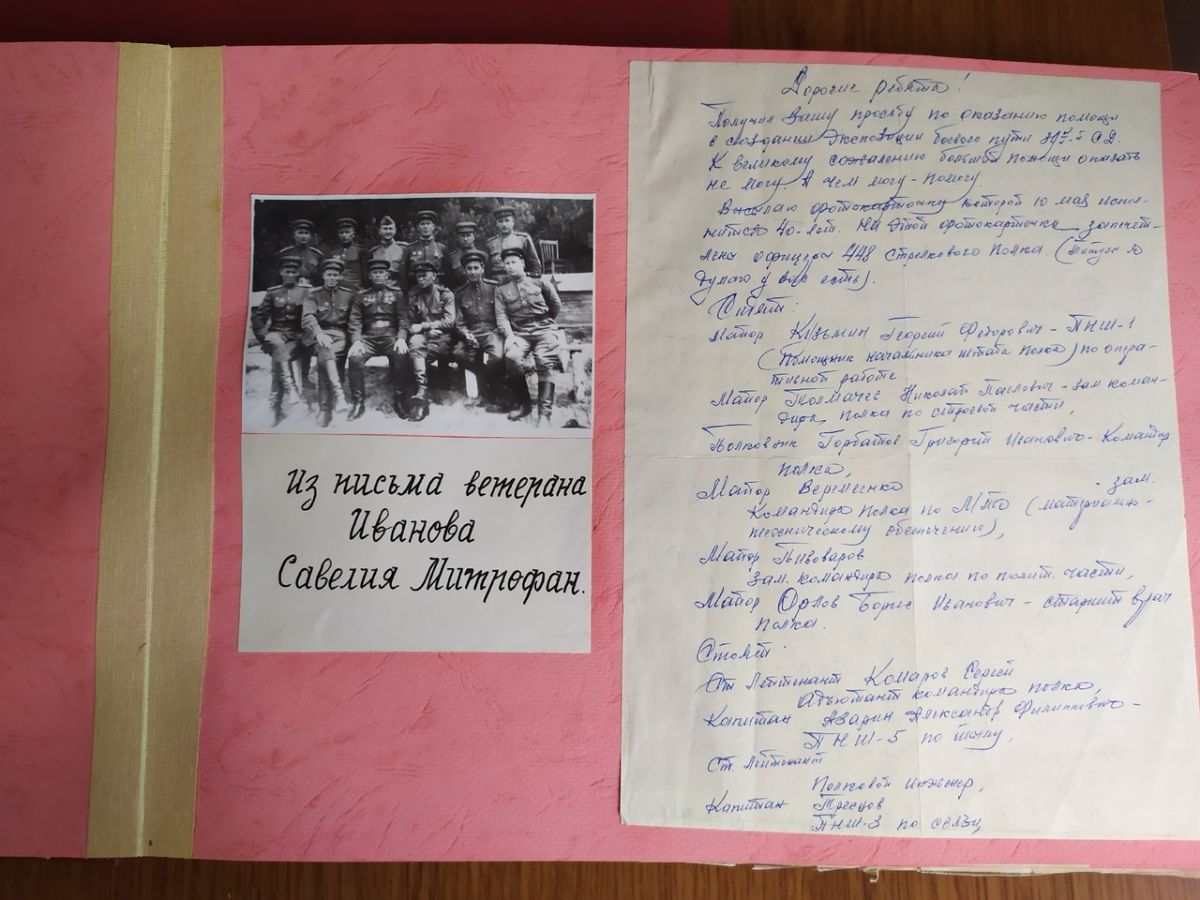 Из письма ветерана
Иванова
Савелия Митрофан.
Дорогие ребята!
Получил Вашу просьбу по оказанию помощи
в создании экспозиции боевого пути 397-й С.Д.
К великому сожалению больше помощи оказать
не могу. А чем могу - помогу.
Высылаю фотокарточку которой 10 мая испол-
нится 40-лет. На этой фотокарточке запечат-
лены офицеры 448 стрелкового полка. (
думаю у вас есть).
Сидят:
Майор Кузьмин Георгий Федорович - ПНШ-1
(Помощник начальника штаба полка) по опера-
тивной работе
Майор Толмачев Николай Павлович - зам коман-
дира полка по строевой части,
Полковник Горбатов Григорий Иванович - Командир
полка,
Майор Веременко зам.
командира полка по МТО (материально-
техническому обеспечению),
Майор Пивоваров
зам. командира полка по полит. части,
Майор Орлов Борис Иванович - старший врач
полка.
Стоят:
Ст. Лейтенант Комаров Сергей
Адъютант командира полка,
Капитан Азарин Александр Филиппович -
ПНШ-5 по тылу,
Ст. Лейтенант
Полковой инженер,
Капитан
ПНШ-3 по связи